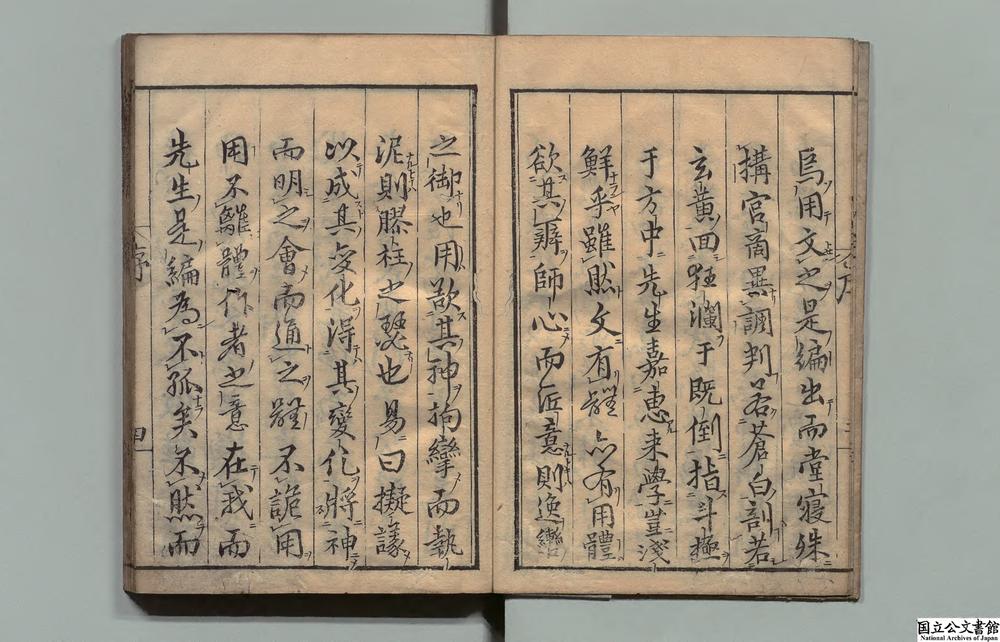 烏用文之是編出而堂寝殊
搆宮商異調判若蒼白剖若
玄黄回狂瀾于既倒指斗極
于方中先生嘉恵来學豈淺
鮮乎雖然文有體亦有用體
欲其辨師心而匠意則逸轡
之御也用欲其神拘攣而執
泥則膠柱之瑟也易曰擬議
以成其変化得其變化將神
而明之會而通之體不詭用
用不離體作者之意在我而
先生是編為不孤矣不然而
序
四
国立公文書館
National Archives of Japan